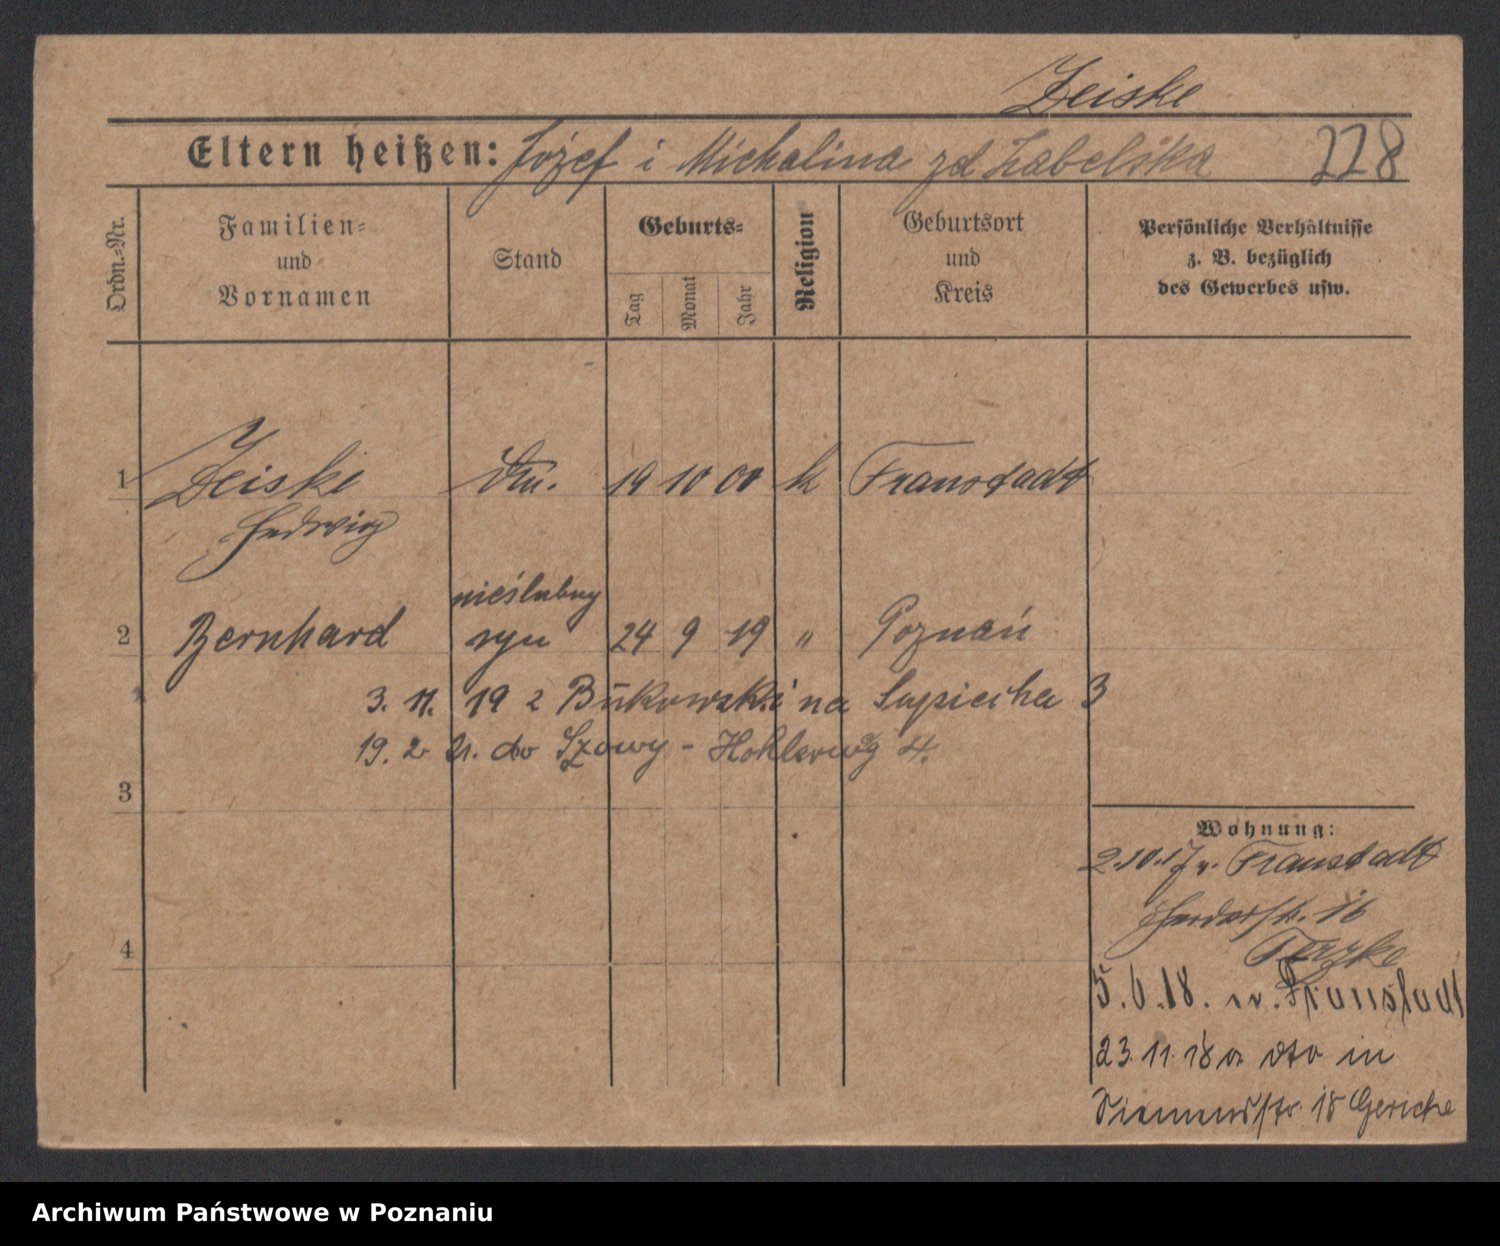 Zeiske
Eltern heißen: Józef i Michalina zd Żabelska 228
Ordn.-Nr.
Familien-
und
Vornamen
Stand
Geburts-
Tag
Monat
Jahr
Religion
Geburtsort
und
Kreis
Persönliche Verhältnisse
z. B. bezüglich
des Gewerbes usw.
1 Zeiske 19 10 00 k Fraustadt
Hedwig
nieślubny
2 Bernhard syn 24 9 19 " Poznań
3. 11. 19 z Bukowski na Sapiecha 3
19. 2 21. do Szowy - Hohlerweg 4.
3
Wohnung:
2.10.17 v. Fraustadt
16
4
5.6.18. n. Fraustadt
23.11.18 a dto in
Siemensstr. 18 Gericke
Archiwum Państwowe w Poznaniu